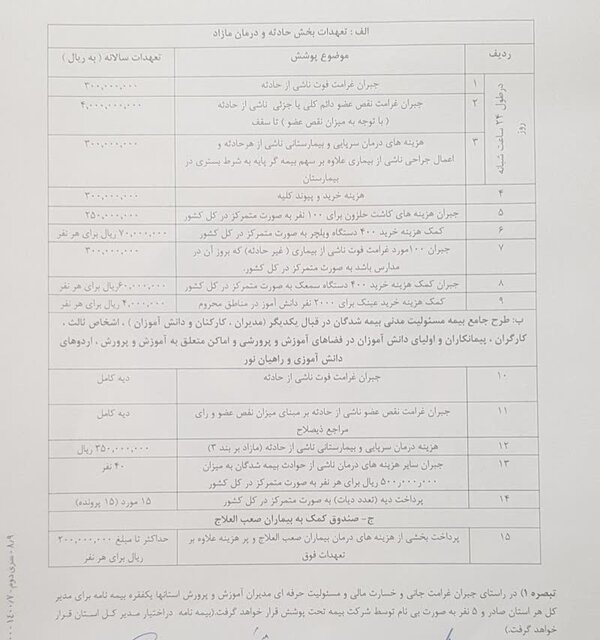 الف : تعهدات بخش حادثه و درمان مازاد
ردیف موضوع پوشش تعهدات سالانه ( به ریال )
در طول ۲۴ ساعت شبانه روز
۱ جبران غرامت فوت ناشی از حادثه ۳۰۰,۰۰۰,۰۰۰
۲ جبران غرامت نقص عضو دائم کلی یا جزئی ناشی از حادثه ۴,۰۰۰,۰۰۰,۰۰۰
( با توجه به میزان نقص عضو ) تا سقف
۳ هزینه های درمان سرپایی و بیمارستانی ناشی از هرحادثه و ۳۰۰,۰۰۰,۰۰۰
اعمال جراحی ناشی از بیماری علاوه بر سهم بیمه گر پایه به شرط بستری در
بیمارستان
۴ هزینه خرید و پیوند کلیه ۳۰۰,۰۰۰,۰۰۰
۵ جبران هزینه های کاشت حلزون برای ۱۰۰ نفر به صورت متمرکز در کل کشور ۲۵۰,۰۰۰,۰۰۰
۶ کمک هزینه خرید ۴۰۰ دستگاه ویلچر به صورت متمرکز در کل کشور ۷۰,۰۰۰,۰۰۰ ریال برای هر نفر
۷ جبران ۱۰۰مورد غرامت فوت ناشی از بیماری ( غیر حادثه) که بروز آن در ۳۰۰,۰۰۰,۰۰۰
مدارس باشد به صورت متمرکز در کل کشور.
۸ جبران کمک هزینه خرید ۴۰۰ دستگاه سمعک به صورت متمرکز در کل کشور ۶۰,۰۰۰,۰۰۰ریال برای هر نفر
۹ کمک هزینه خرید عینک برای ۲۰۰۰ نفر دانش آموز در مناطق محروم ۴,۰۰۰,۰۰۰ ریال برای هر نفر
ب: طرح جامع بیمه مسئولیت مدنی بیمه شدگان در قبال یکدیگر (مدیران ، کارکنان و دانش آموزان ) ، اشخاص ثالث ،
کارگران ، پیمانکاران و اولیای دانش آموزان در فضاهای آموزش و پرورشی و اماکن متعلق به آموزش و پرورش ، اردوهای
دانش آموزی و راهیان نور
۱۰ جبران غرامت فوت ناشی از حادثه دیه کامل
۱۱ جبران غرامت نقص عضو ناشی از حادثه بر مبنای میزان نقص عضو و رای دیه کامل
مراجع ذیصلاح
۱۲ هزینه درمان سرپایی و بیمارستانی ناشی از حادثه (مازاد بر بند ۳) ۳۵۰,۰۰۰,۰۰۰ ریال
۱۳ جبران سایر هزینه های درمان ناشی از حوادث بیمه شدگان به میزان ۴۰ نفر
۵۰۰,۰۰۰,۰۰۰ ریال برای هر نفر به صورت متمرکز در کل کشور
۱۴ پرداخت دیه (تعدد دیات) به صورت متمرکز در کل کشور ۱۵ مورد (۱۵ پرونده)
ج- صندوق کمک به بیماران صعب العلاج
۱۵ پرداخت بخشی از هزینه های درمان بیماران صعب العلاج و پر هزینه علاوه بر حداکثر تا مبلغ ۲۰۰,۰۰۰,۰۰۰
تعهدات فوق ریال برای هر نفر
تبصره ۱) در راستای جبران غرامت جانی و خسارت مالی و مسئولیت حرفه ای مدیران آموزش و پرورش استانها یکفقره بیمه نامه برای مدیر
کل هر استان صادر و ۵ نفر به صورت بی نام توسط شرکت بیمه تحت پوشش قرار خواهد گرفت.(بیمه نامه دراختیار مدیر کل استان قرار
خواهد گرفت.)